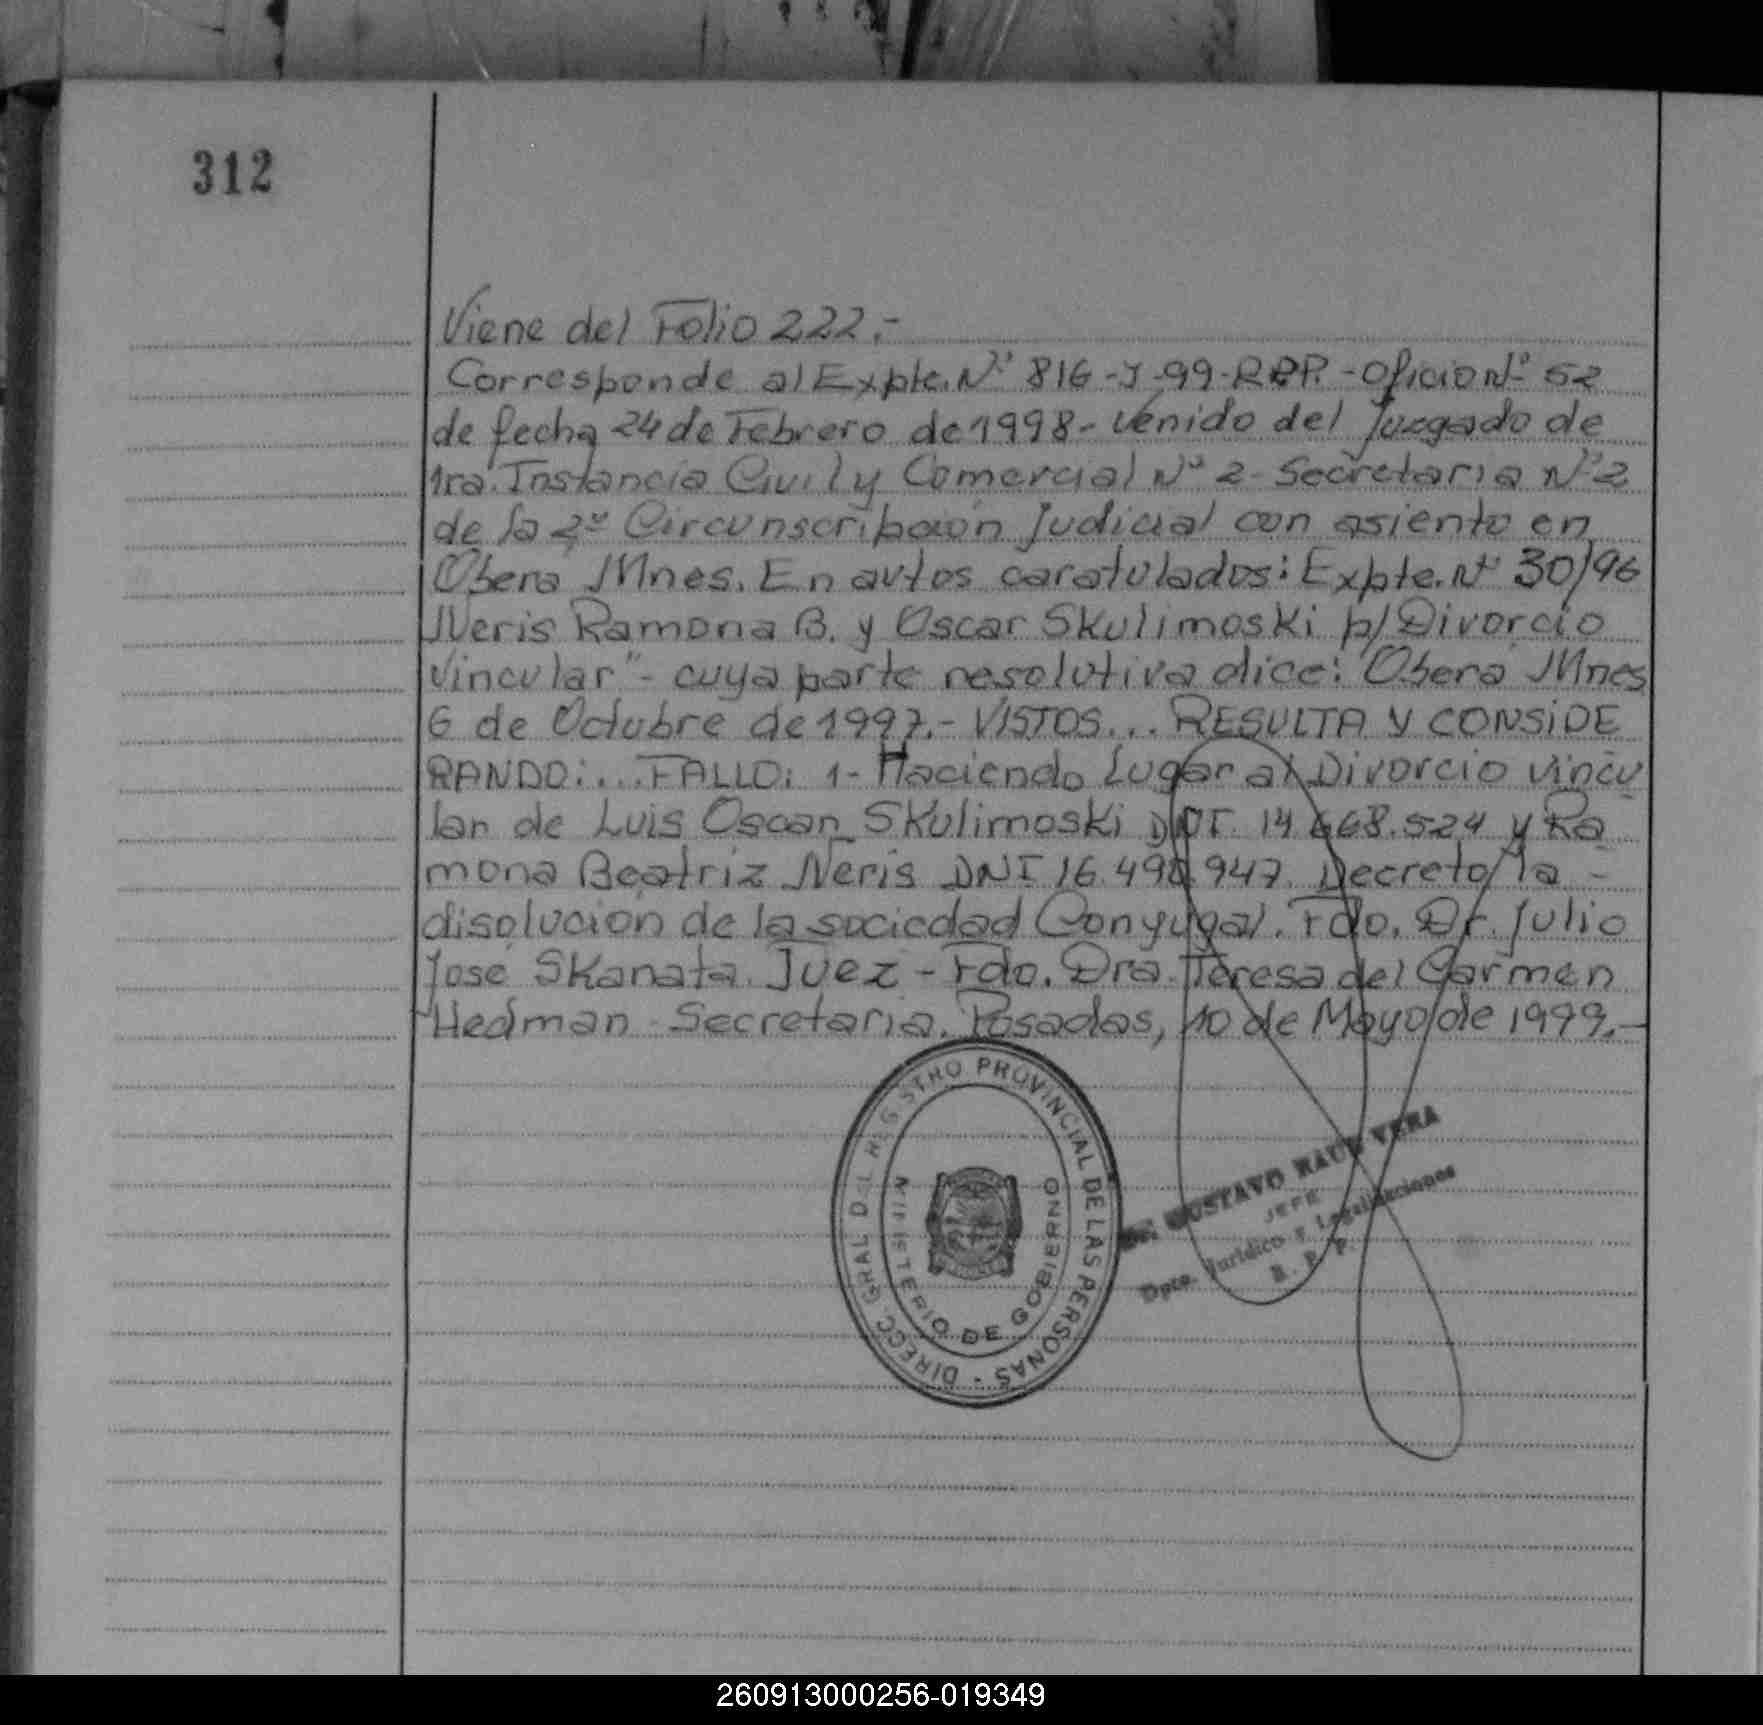 312
Viene del Folio 222.-
Corresponde al Expte. Nº 816-J-99-RPP.-Oficio Nº 52
de fecha 24 de Febrero de 1998- venido del Juzgado de
1ra. Instancia Civil y Comercial Nº 2- Secretaria Nº 2
de la 2º Circunscripción Judicial con asiento en
Oberá Mnes. En autos caratulados: Expte. Nº 30/96
Neris Ramona B. y Oscar Skulimoski p/ Divorcio
Vincular"- cuya parte resolutiva dice: "Oberá Mnes
6 de Octubre de 1997.- VISTOS... RESULTA Y CONSIDE
RANDO:... FALLO: 1- Haciendo Lugar al Divorcio vincu
lar de Luis Oscar Skulimoski DNI. 14.668.524 y Ra
mona Beatriz Neris DNI 16.490.947. Decreto la -
disolución de la sociedad Conyugal. Fdo. Dr. Julio
José Skanata. Juez - Fdo. Dra. Teresa del Carmen
Hedman - Secretaria. Posadas, 10 de Mayo de 1999.-
DIRECC. GRAL DEL REGISTRO PROVINCIAL DE LAS PERSONAS -
MINISTERIO DE GOBIERNO
Dr. GUSTAVO RAUL VERA
JEFE
Dpto. Jurídico y Legalizaciones
R. P. P.
260913000256-019349